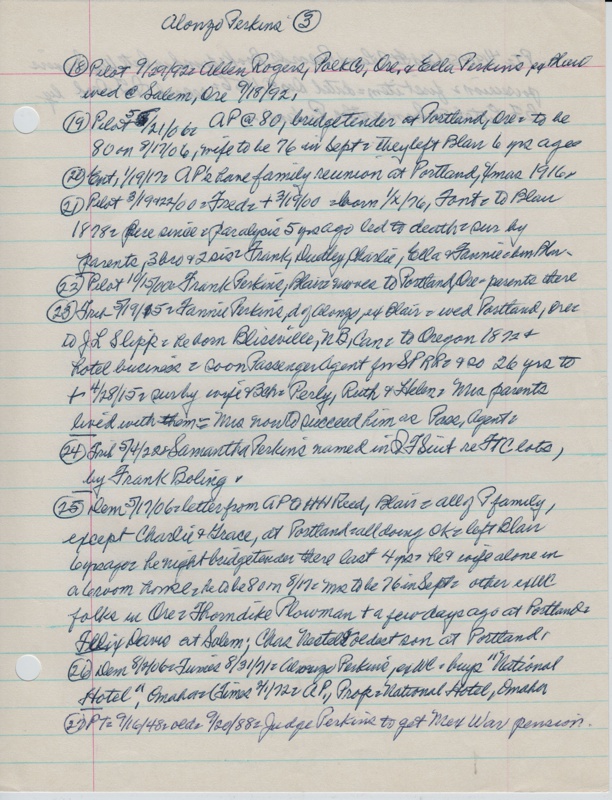 Alonzo Perkins (3)
(18) Pilot 9/29/92 = Allen Rogers, Polk Co, Ore, & Ella Perkins, ex Blair
wed @ Salem, Ore 9/18/92,
(19) Pilot 5/21/06 = AP @ 80, bridgetender at Portland, Ore = to be
80 on 8/17/06, wife to be 76 in Sept = they left Blair 6 yrs ago
(20) Ent, 1/19/17 = AP's have family reunion at Portland, Xmas 1916.
(21) Pilot 3/19 + 22/00 = Fred = + 3/19/00 = born 1/2/76, Font = to Blair
1878 = here since = paralysis 5 yrs ago led to death = sur by
parents, 3 bro & 2 sis = Frank, Dudley, Charlie, Ella & Fannie =
(22) Pilot 11/15/00 = Frank Perkins, Blair = moves to Portland, Ore = parents there
(23) Trib 5/19/15 = Fannie Perkins, d of Alonzo, ex Blair = wed Portland, Ore
to J L Slipp = he born Blissville, NB, Can = to Oregon 1872 +
hotel business = soon Passenger Agent for SPRR = & so 26 yrs to
+ 4/28/15 = sur by wife & = Perly, Ruth & Helen = Mrs parents
lived with them = Mrs now to succeed him as Pass, Agent =
(24) Trib 5/4/22 = Samantha Perkins named in QT Suit re FTC lots,
by Frank Boling.
(25) Dem 5/17/06 = letter from AP to HH Reed, Blair = all of P family,
except Charlie & Grace, at Portland = all doing OK = left Blair
6 yrs ago = he night bridgetender there last 4 yrs = he & wife alone in
a 6 room house = he to be 80 on 8/17 = Mrs to be 76 in Sept = other exWC
folks in Ore = Thorndike Plowman + a few days ago at Portland =
Felix Davis at Salem; Chas oldest son at Portland,
(26) Dem = Times 8/31/71 = Alonzo Perkins, exWC = buys "National
Hotel", Omaha = (Times 9/1/72 = AP, Prop = National Hotel, Omaha
(27) PT = 9/16/48 = 9/20/88 = Judge Perkins to get Mex War pension.